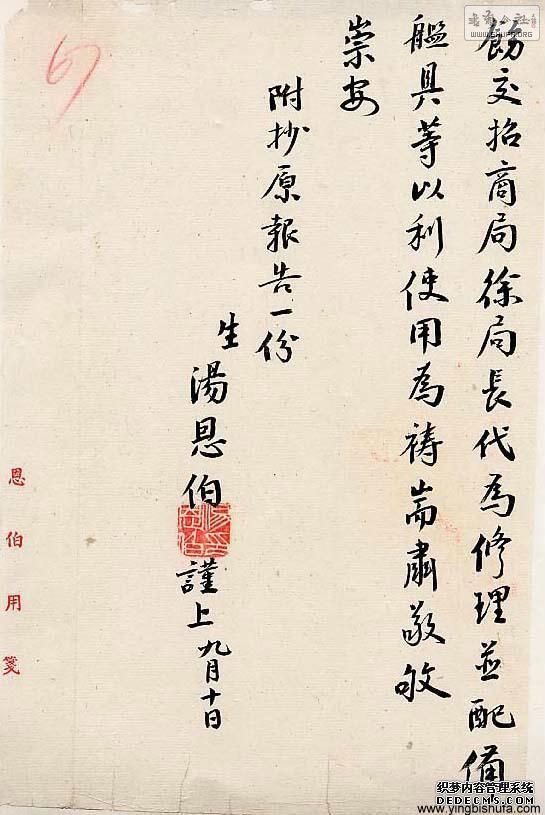 飭交招商局徐局長代為修理並配備
艦具等以利使用為禱耑肅敬敂
崇安
附抄原報告一份
生
湯恩伯
謹上九月十日
恩伯用箋
書法公社
WWW.SHUFA.ORG
织梦内容管理系统
DEDECMS.COM
www.yingbishufa.com